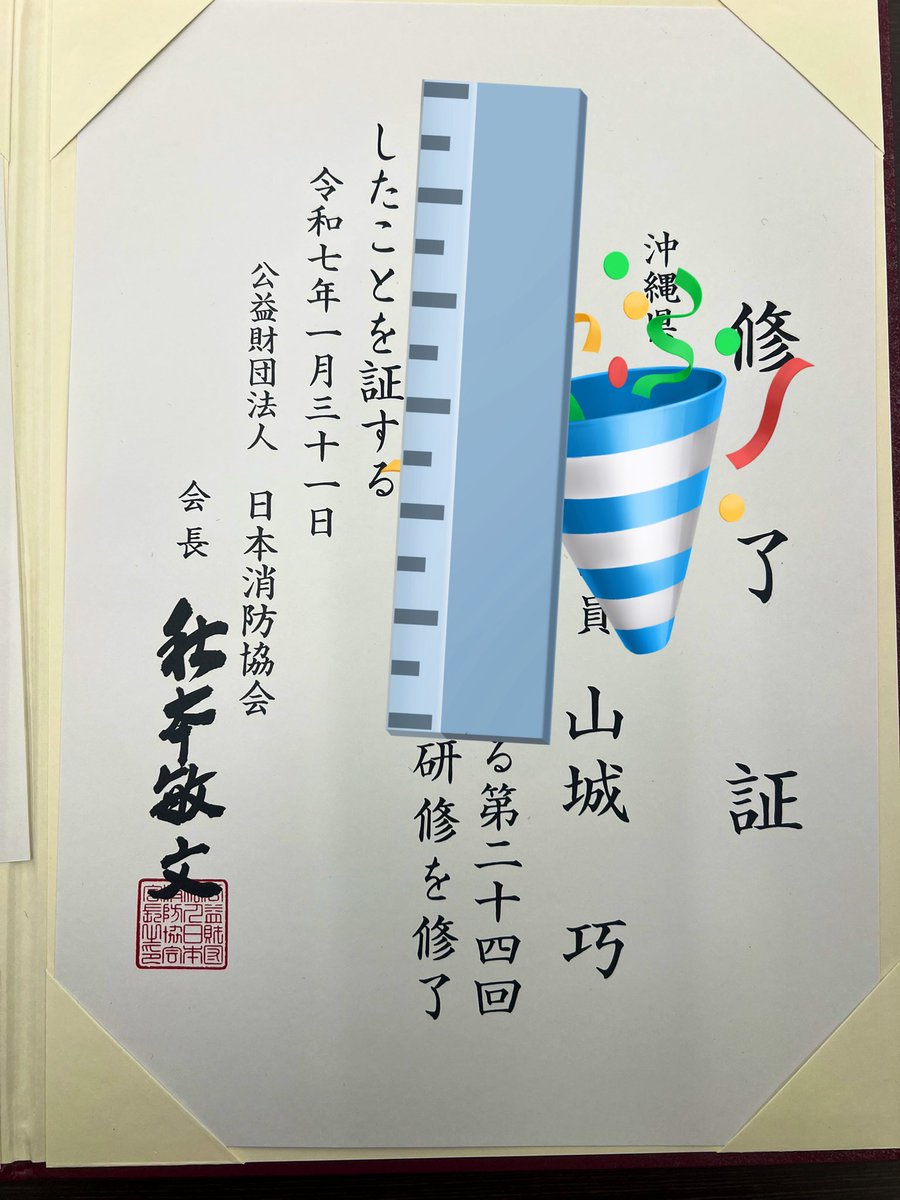 修了証
沖縄県
員 山城 巧
る第二十四回
研修を修了
したことを証する
令和七年一月三十一日
公益財団法人 日本消防協会
会長 秋本敏文